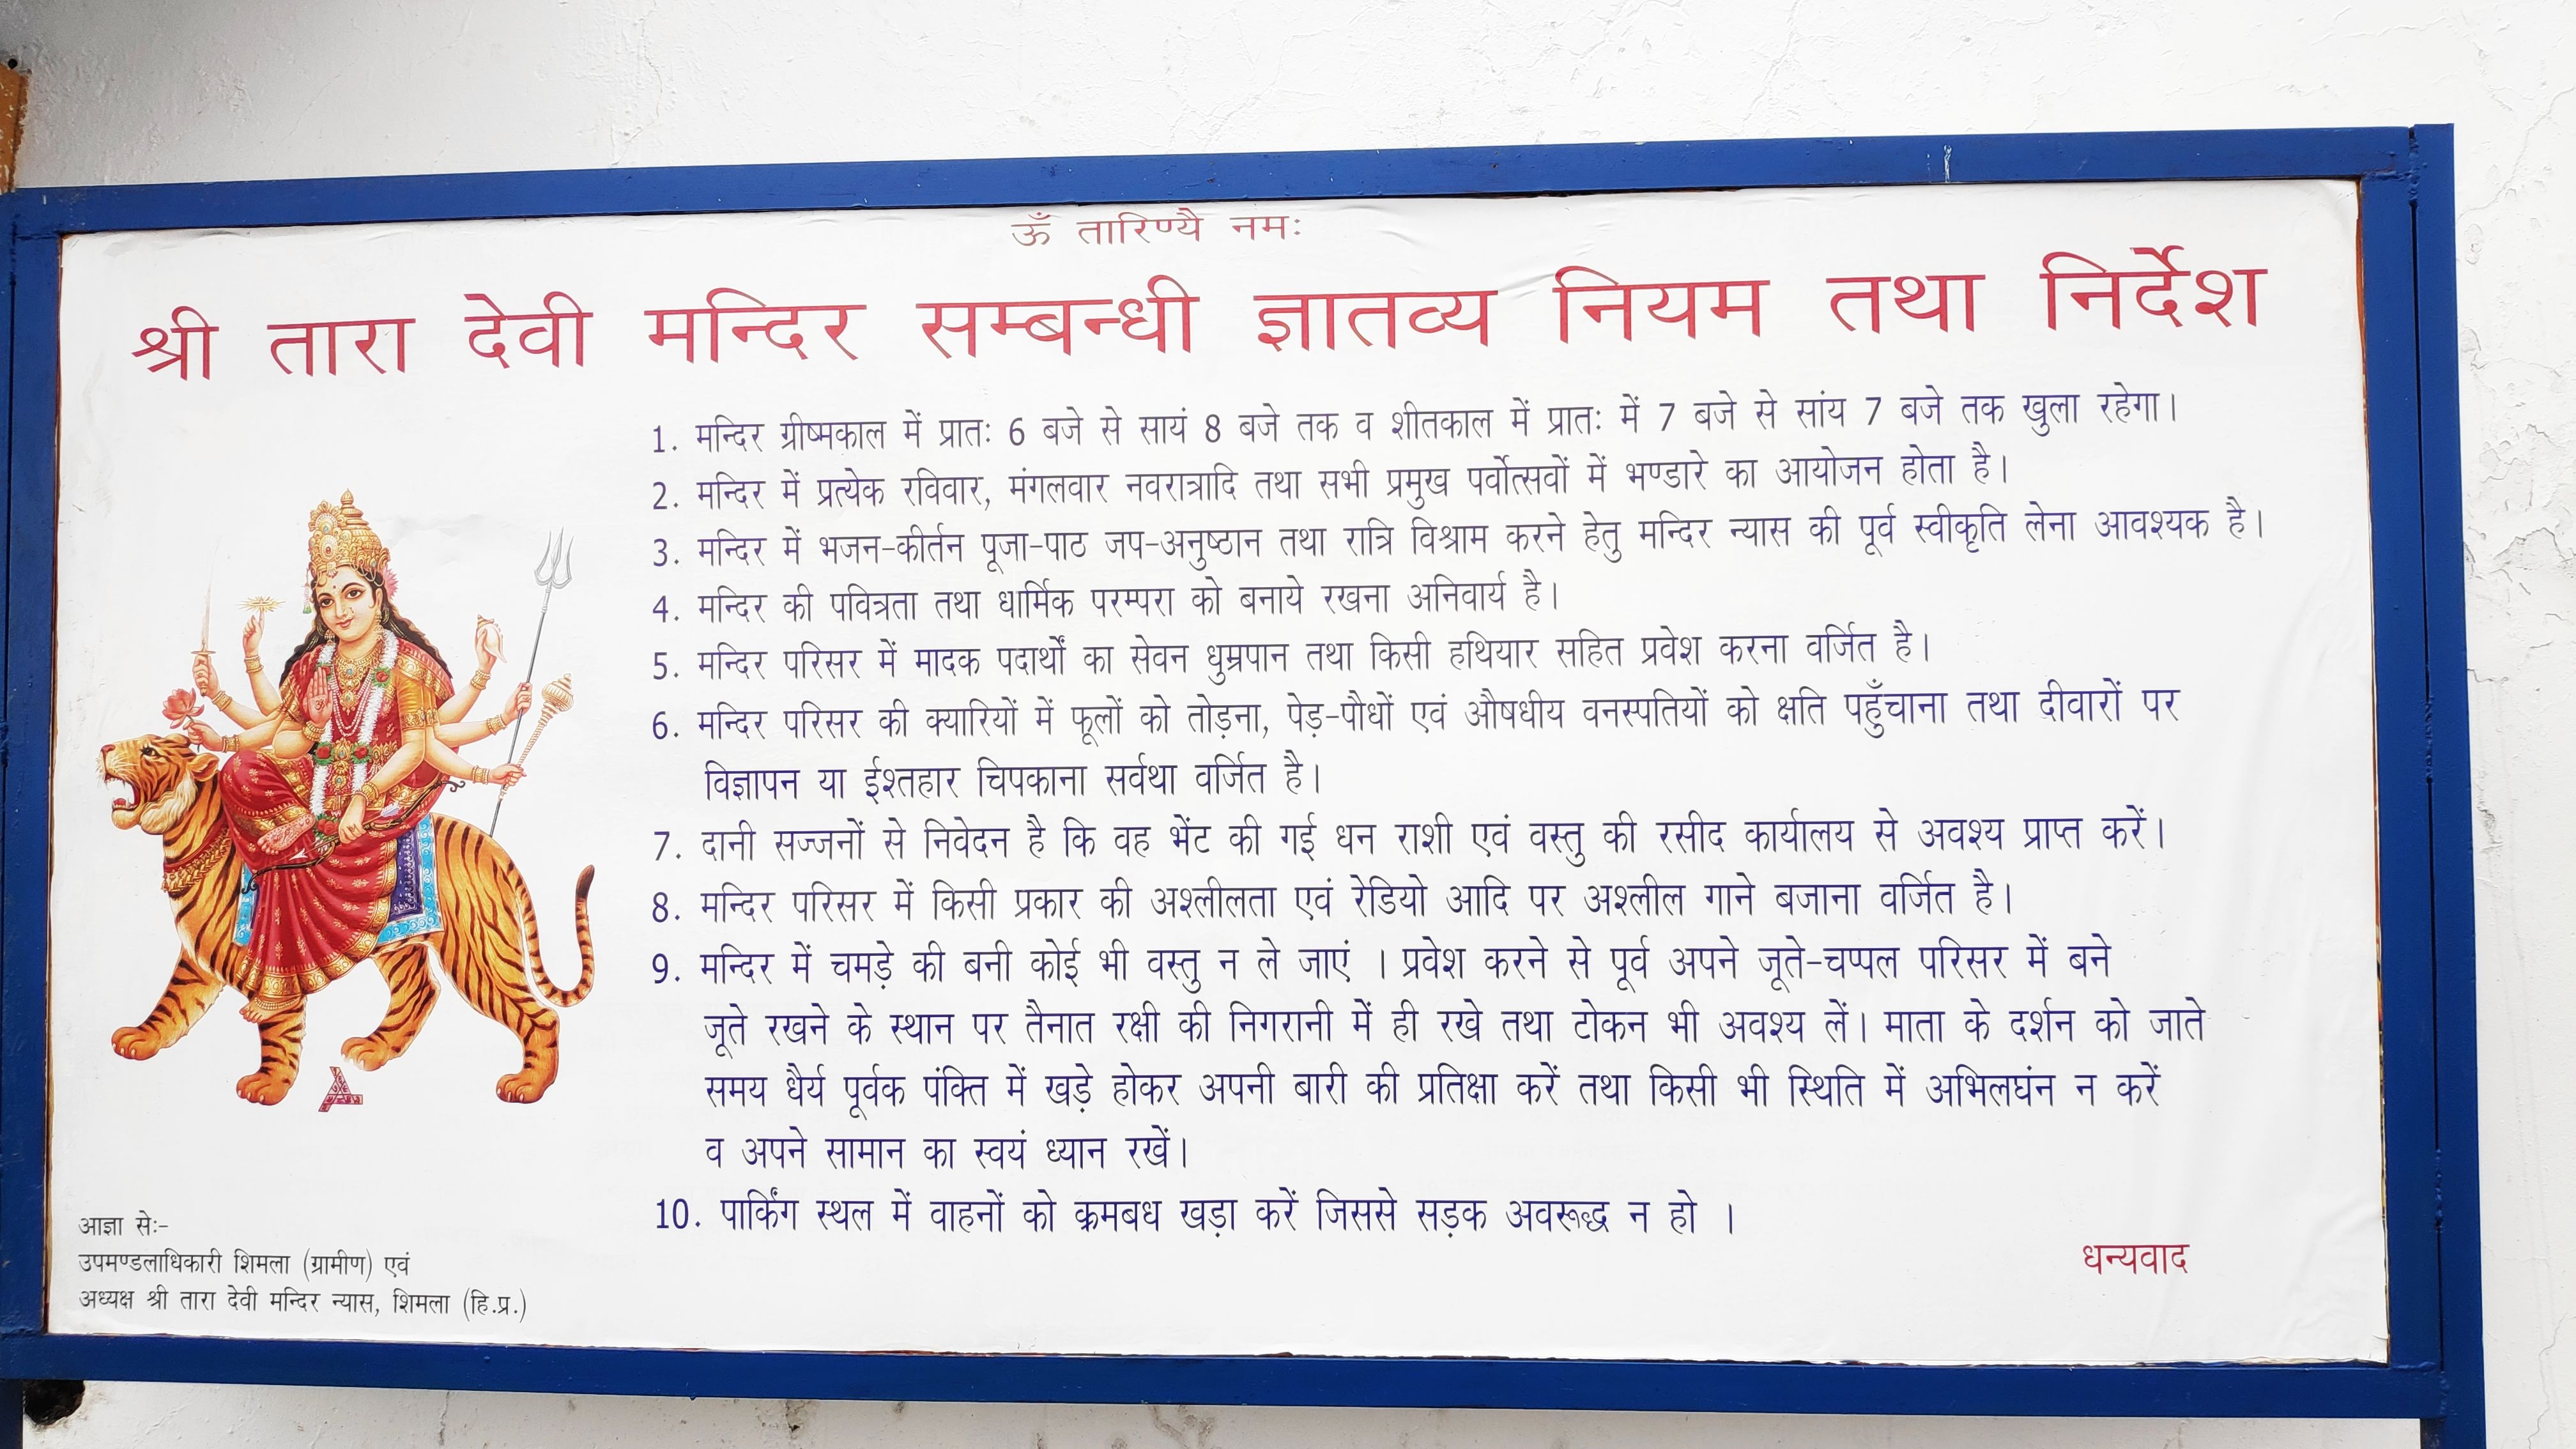 ॐ तारिण्यै नमः
श्री तारा देवी मन्दिर सम्बन्धी ज्ञातव्य नियम तथा निर्देश
1. मन्दिर ग्रीष्मकाल में प्रातः 6 बजे से सायं 8 बजे तक व शीतकाल में प्रातः में 7 बजे से सांय 7 बजे तक खुला रहेगा।
2. मन्दिर में प्रत्येक रविवार, मंगलवार नवरात्रादि तथा सभी प्रमुख पर्वोत्सवों में भण्डारे का आयोजन होता है।
3. मन्दिर में भजन-कीर्तन पूजा-पाठ जप-अनुष्ठान तथा रात्रि विश्राम करने हेतु मन्दिर न्यास की पूर्व स्वीकृति लेना आवश्यक है।
4. मन्दिर की पवित्रता तथा धार्मिक परम्परा को बनाये रखना अनिवार्य है।
5. मन्दिर परिसर में मादक पदार्थों का सेवन धुम्रपान तथा किसी हथियार सहित प्रवेश करना वर्जित है।
6. मन्दिर परिसर की क्यारियों में फूलों को तोड़ना, पेड़-पौधों एवं औषधीय वनस्पतियों को क्षति पहुँचाना तथा दीवारों पर
विज्ञापन या ईश्तहार चिपकाना सर्वथा वर्जित है।
7. दानी सज्जनों से निवेदन है कि वह भेंट की गई धन राशी एवं वस्तु की रसीद कार्यालय से अवश्य प्राप्त करें।
8. मन्दिर परिसर में किसी प्रकार की अश्लीलता एवं रेडियो आदि पर अश्लील गाने बजाना वर्जित है।
9. मन्दिर में चमड़े की बनी कोई भी वस्तु न ले जाएं । प्रवेश करने से पूर्व अपने जूते-चप्पल परिसर में बने
जूते रखने के स्थान पर तैनात रक्षी की निगरानी में ही रखे तथा टोकन भी अवश्य लें। माता के दर्शन को जाते
समय धैर्य पूर्वक पंक्ति में खड़े होकर अपनी बारी की प्रतिक्षा करें तथा किसी भी स्थिति में अभिलघंन न करें
व अपने सामान का स्वयं ध्यान रखें।
10. पार्किंग स्थल में वाहनों को क्रमबध खड़ा करें जिससे सड़क अवरूद्ध न हो ।
धन्यवाद
आज्ञा सेः-
उपमण्डलाधिकारी शिमला (ग्रामीण) एवं
अध्यक्ष श्री तारा देवी मन्दिर न्यास, शिमला (हि.प्र.)